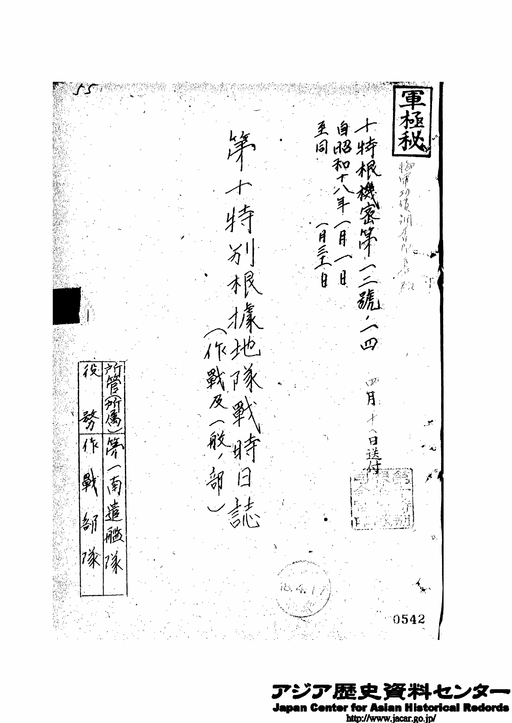 55
軍極秘
十特根機密第一二號ノ一四
自昭和十八年一月一日
至同　　　一月三十一日
四月十八日送付
第十特別根據地隊戰時日誌
(作戰及一般ノ部)
所管(所属) 第一南遣艦隊
役務 作戰部隊
18.4.17
0542
アジア歴史資料センター
Japan Center for Asian Historical Records
http://www.jacar.go.jp/